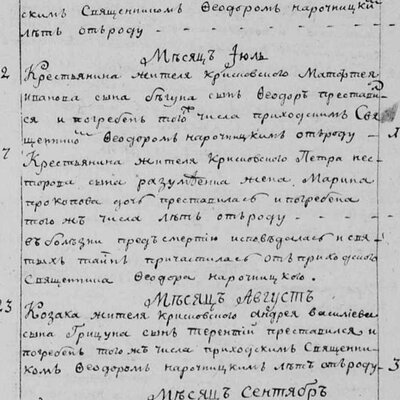 скимъ Священникомъ Ѳеодоромъ нарочицки
лѣтъ отъроду
Мѣсяцъ Июль
2 Крестьянина жителя крисковского Матѳтея
иванова сына бѣгуна сынъ Ѳеодоръ преставь
ся и погребенъ того числа приходскимъ Свя
щенико Ѳеодоромъ нарочицкимъ отъроду
7 Крестьянина жителя Крисковского Петра нес
торова сына разумѣнна жена Марина
прокопова дочь преставилась и погребена
того жъ числа лѣтъ отъроду
въ болѣзни предъ смертію исповѣдалась и свя
тыхъ таинъ причастилась отъ приходского
Священника Ѳеодора нарочицкого.
Мѣсяцъ Августъ
23 Козака жителя крисковского андрея василіева
сына Грицуна сынъ терентій преставился и
погребенъ того жъ числа приходскимъ Священни
комъ Ѳеодоромъ нарочицкимъ лѣтъ отъроду 3
Мѣсяцъ Сентябръ